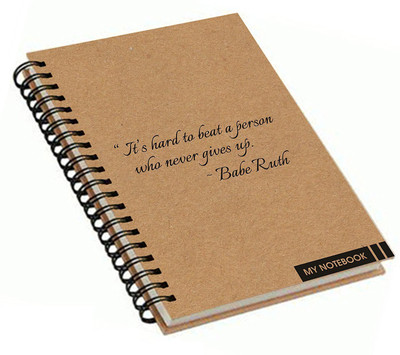 “ It's hard to beat a person
who never gives up.
~ Babe Ruth
MY NOTEBOOK